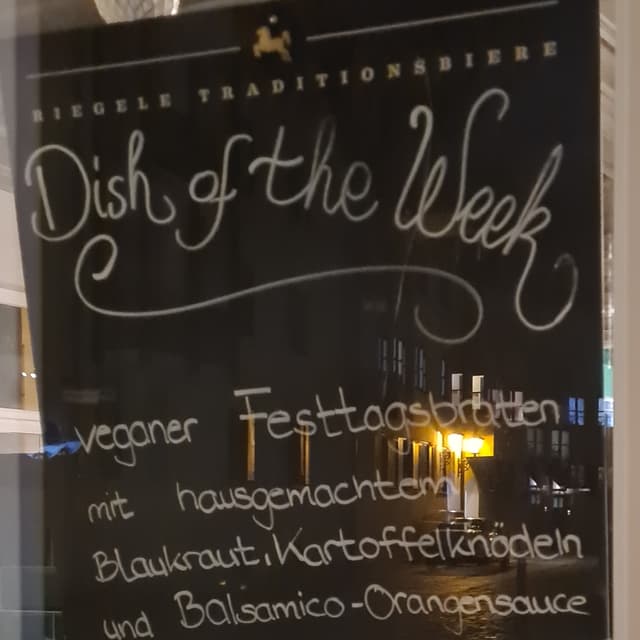 RIEGELE TRADITIONSBIERE
Dish of the Week
veganer Festtagsbraten
mit hausgemachtem
Blaukraut, Kartoffelknödeln
und Balsamico-Orangensauce